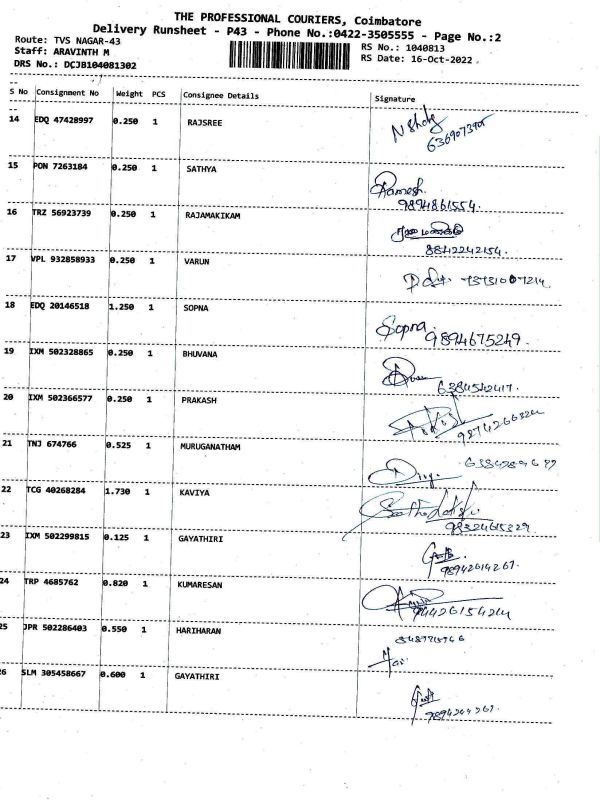 THE PROFESSIONAL COURIERS, Coimbatore
Delivery Runsheet - P43 - Phone No.:0422-3505555 - Page No.:2
Route: TVS NAGAR-43
RS No.: 1040813
Staff: ARAVINTH M
RS Date: 16-Oct-2022
DRS No.: DCJB104081302
S No Consignment No Weight PCS Consignee Details Signature
14 EDQ 47428997 0.250 1 RAJSREE
15 PON 7263184 0.250 1 SATHYA
Ramesh
9894861554
16 TRZ 56923739 0.250 1 RAJAMAKIKAM
8842242154
17 VPL 932858933 0.250 1 VARUN
18 EDQ 20146518 1.250 1 SOPNA
Sopna
9894675249
19 IXM 502328865 0.250 1 BHUVANA
6384542417
20 IXM 502366577 0.250 1 PRAKASH
21 TNJ 674766 0.525 1 MURUGANATHAM
22 TCG 40268284 1.730 1 KAVIYA
9832465329
23 IXM 502299815 0.125 1 GAYATHIRI
98942614267
24 TRP 4685762 0.820 1 KUMARESAN
25 JPR 502286403 0.550 1 HARIHARAN
Hari
26 SLM 305458667 0.600 1 GAYATHIRI